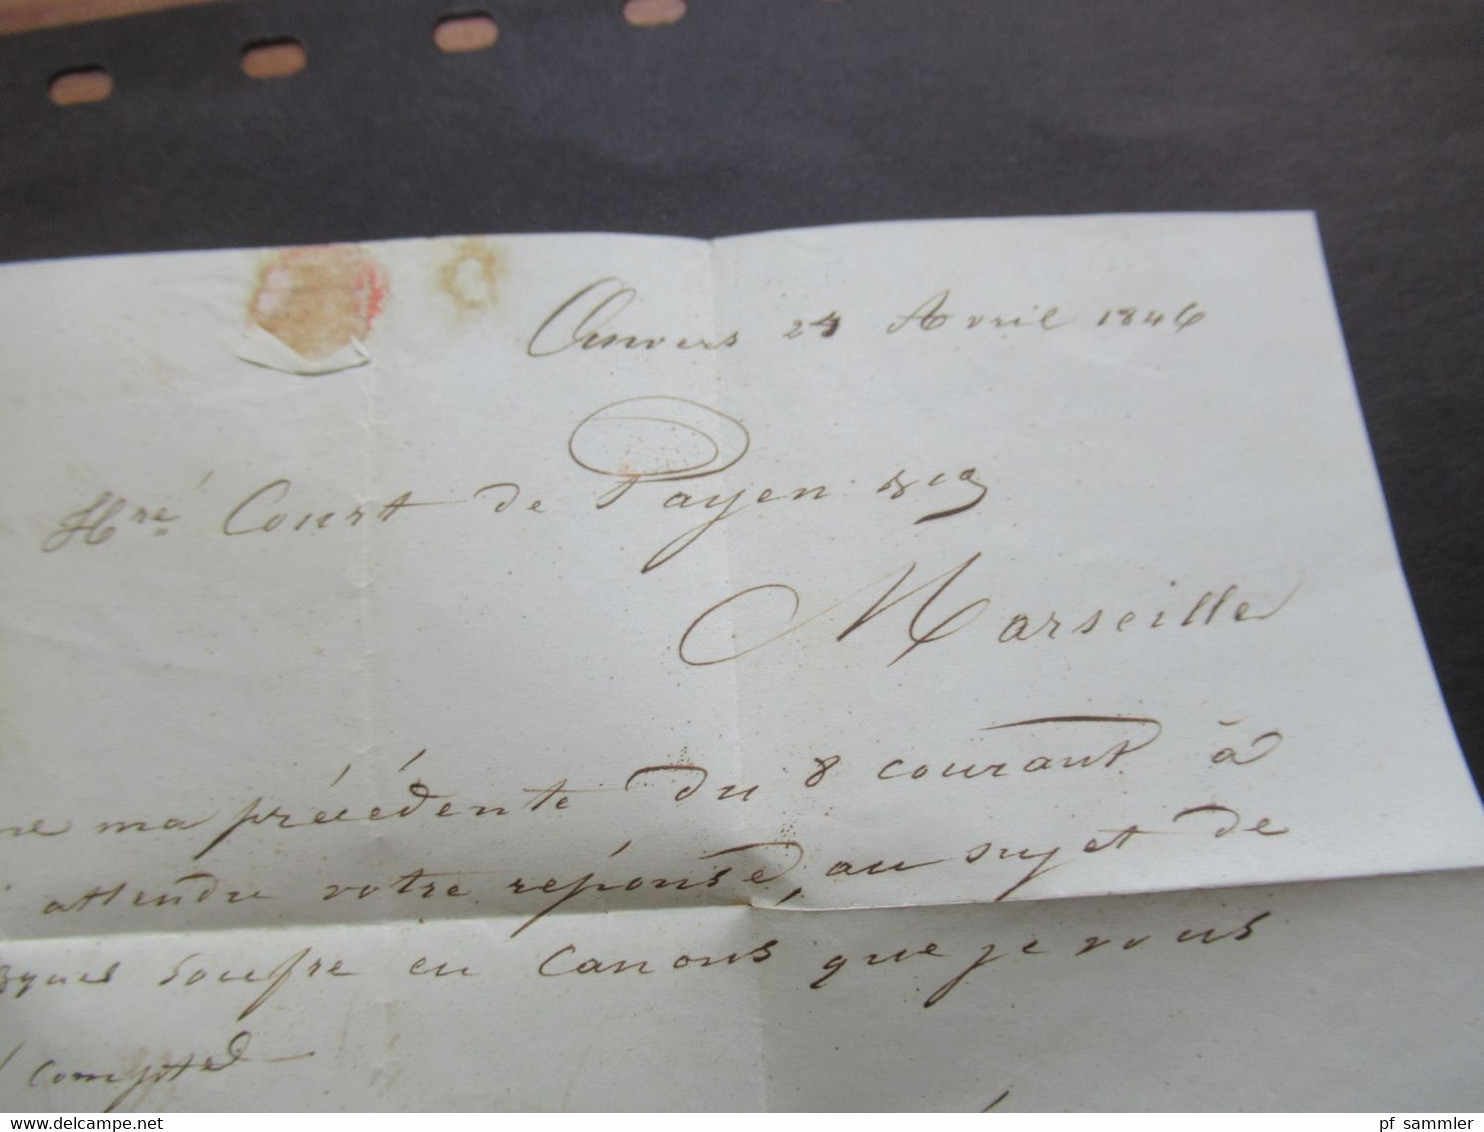 Anvers 24 Avril 1846
Court de Payen &
Marseille
ma précédente du 8 courant à
attendre votre réponse, au sujet de
soufre en canons, que je vous
delcampe.net
pf_sammler